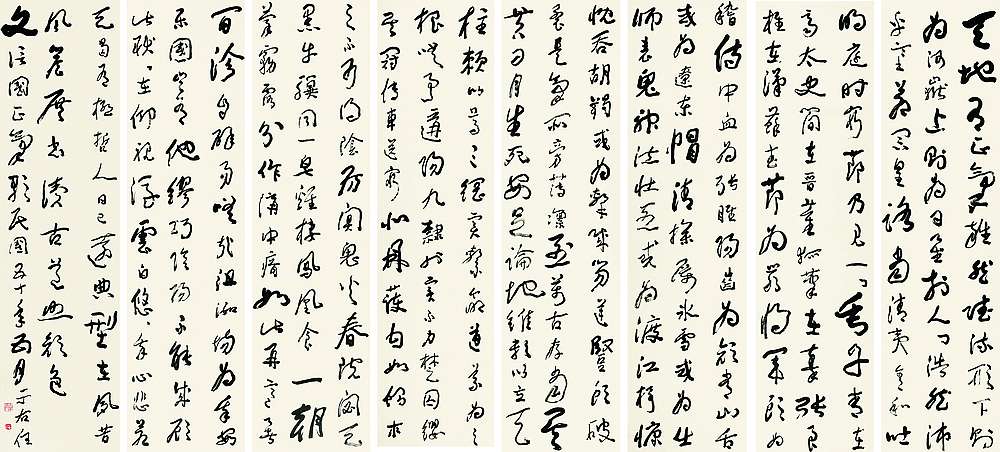 天地有正氣雜然賦流形下則
為河嶽上則為日星於人曰浩然沛
乎塞蒼冥皇路當清夷含和吐
明庭時窮節乃見一一垂丹青在
齊太史簡在晉董狐筆在秦張良
椎在漢蘇武節為嚴將軍頭為
嵇侍中血為張睢陽齒為顏常山舌
或為遼東帽清操厲冰雪或為出
師表鬼神泣壯烈或為渡江楫慷
慨吞胡羯或為擊賊笏逆豎頭破
裂是氣所旁薄凜烈萬古存當其
貫日月生死安足論地維賴以立天
柱賴以尊三綱實繫命道義為之
根嗟予遘陽九隸也實不力楚囚纓
其冠傳車送窮北鼎鑊甘如飴求
之不可得陰房闃鬼火春院閟天
黑牛驥同一皂雞棲鳳凰食一朝
蒙霧露分作溝中瘠如此再寒暑
百沴自辟易嗟哉沮洳場為我安
樂國豈有他繆巧陰陽不能賊顧
此耿耿在仰視浮雲白悠悠我心悲蒼
天曷有極哲人日已遠典型在夙昔
風簷展書讀古道照顏色
文信國正氣歌民國五十年四月于右任